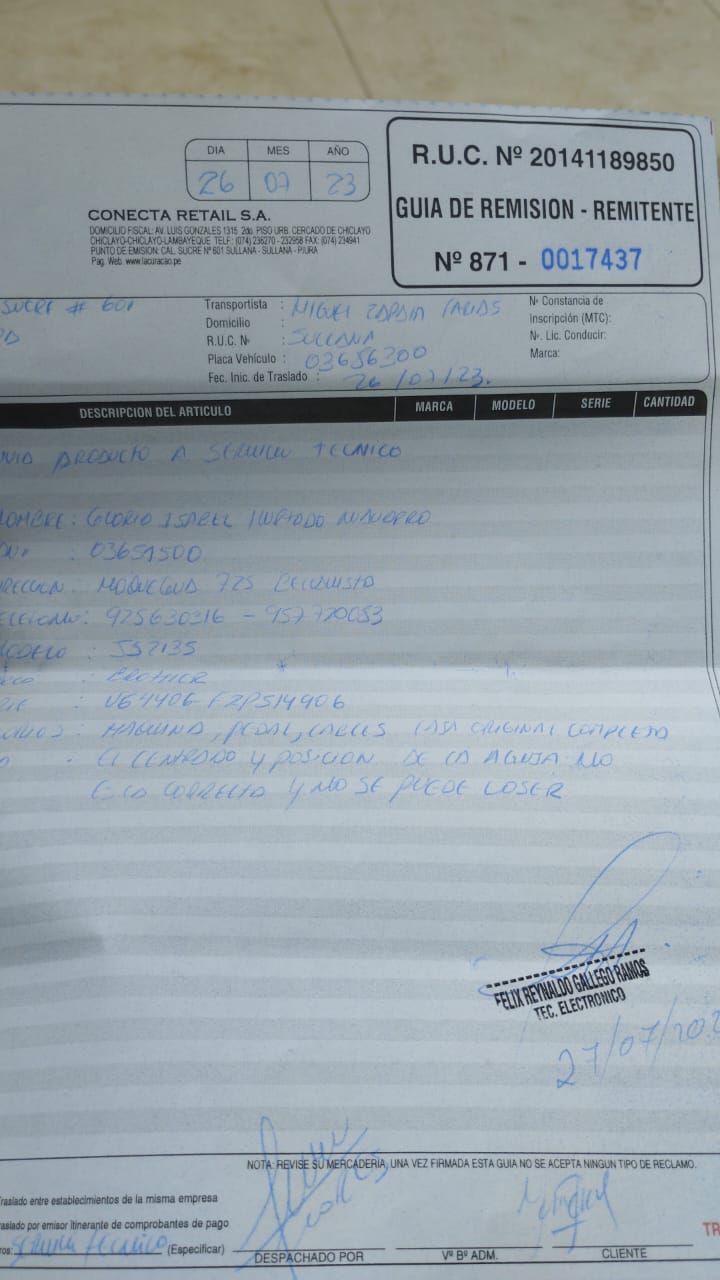 DIA MES AÑO
26 07 23
R.U.C. Nº 20141189850
GUIA DE REMISION - REMITENTE
Nº 871 - 0017437
CONECTA RETAIL S.A.
DOMICILIO FISCAL: AV. LUIS GONZALES 1315 2do. PISO URB. CERCADO DE CHICLAYO
CHICLAYO-CHICLAYO-LAMBAYEQUE TELF.: (074) 236270 - 232958 FAX: (074) 234941
PUNTO DE EMISION: CAL. SUCRE Nº 601 SULLANA - SULLANA - PIURA
Pag. Web. www.lacuracao.pe
SUCRE # 601
Transportista : MIGUEL ZAPATA
Domicilio :
R.U.C. Nº : SULLANA
Placa Vehículo : 03656300
Fec. Inic. de Traslado : 26/07/23.
Nº Constancia de
Inscripción (MTC):
Nº. Lic. Conducir:
Marca:
DESCRIPCION DEL ARTICULO MARCA MODELO SERIE CANTIDAD
PRODUCTO A SERVICIO TECNICO
NOMBRE: GLORIA ISABEL HURTADO NAVARRO
: 03651500
: MOQUEGUA 725 BELLAVISTA
: 925630316 - 957770053
: JS2135
: BROTHER
: U64406-F2P514906
: MAQUINA, PEDAL, CABLES CAJA ORIGINAL COMPLETO
. El CENTRADO Y POSICION DE LA AGUJA NO
ES LA CORRECTA Y NO SE PUEDE COSER
FELIX REYNALDO GALLEGO RAMOS
TEC. ELECTRONICO
27/07/202
NOTA: REVISE SU MERCADERÍA, UNA VEZ FIRMADA ESTA GUIA NO SE ACEPTA NINGUN TIPO DE RECLAMO.
Traslado entre establecimientos de la misma empresa
raslado por emisor itinerante de comprobantes de pago
ros: SERVICIO TECNICO (Especificar)
DESPACHADO POR Vº Bº ADM. CLIENTE
TR